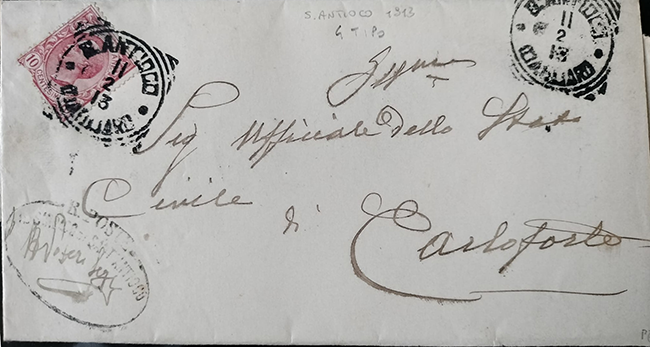 S. ANTIOCO 1913
4 TIPO
10
S. ANTIOCO
11
2
13
(CAGLIARI)
S. ANTIOCO
11
2
13
(CAGLIARI)
Sig Ufficiale dello Stato
Civile
di
Carloforte